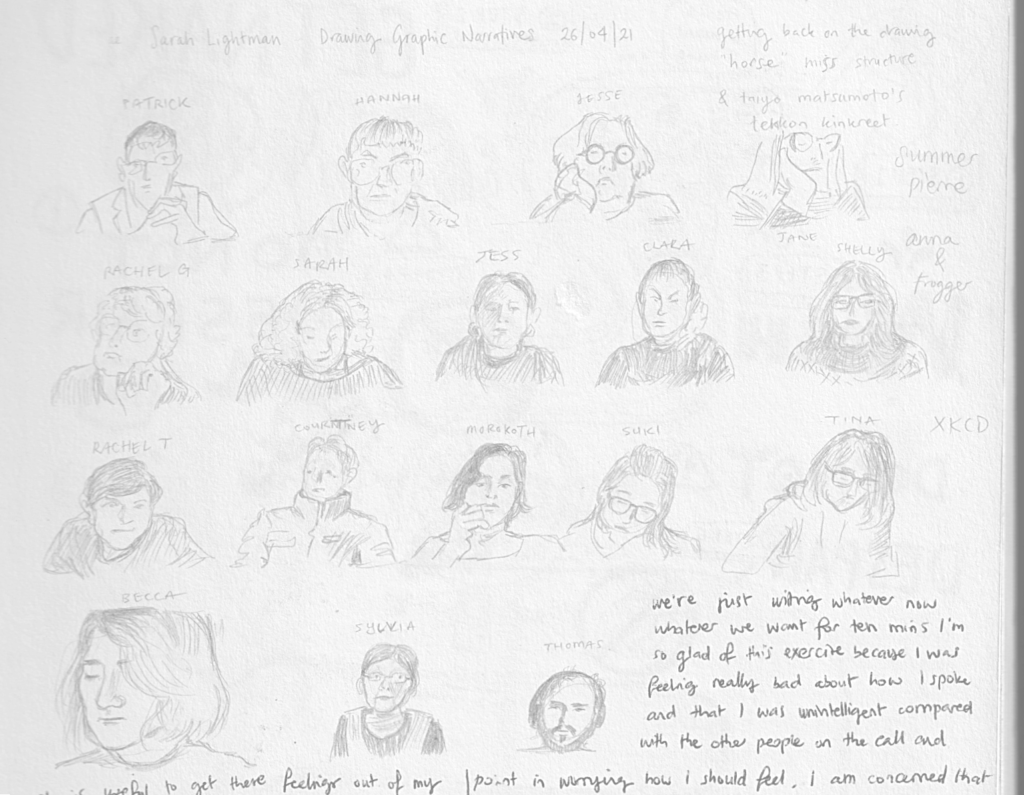 Sarah Lightman Drawing Graphic Narratives 26/04/21
getting back on the drawing
"horse" miss structure
& taiyo matsumoto's
tekkon kinkreet
Summer
Pierre
PATRICK
HANNAH
JESSE
JANE
anna
&
frogger
RACHEL G
SARAH
JESS
CLARA
SHELLY
RACHEL T
COURTNEY
MOROKOTH
SUKI
TINA
XKCD
BECCA
SYLVIA
THOMAS
we're just writing whatever now
whatever we want for ten mins I'm
so glad of this exercise because I was
feeling really bad about how I spoke
and that I was unintelligent compared
with the other people on the call and
is useful to get these feelings out of my
point in worrying how i should feel. I am concerned that